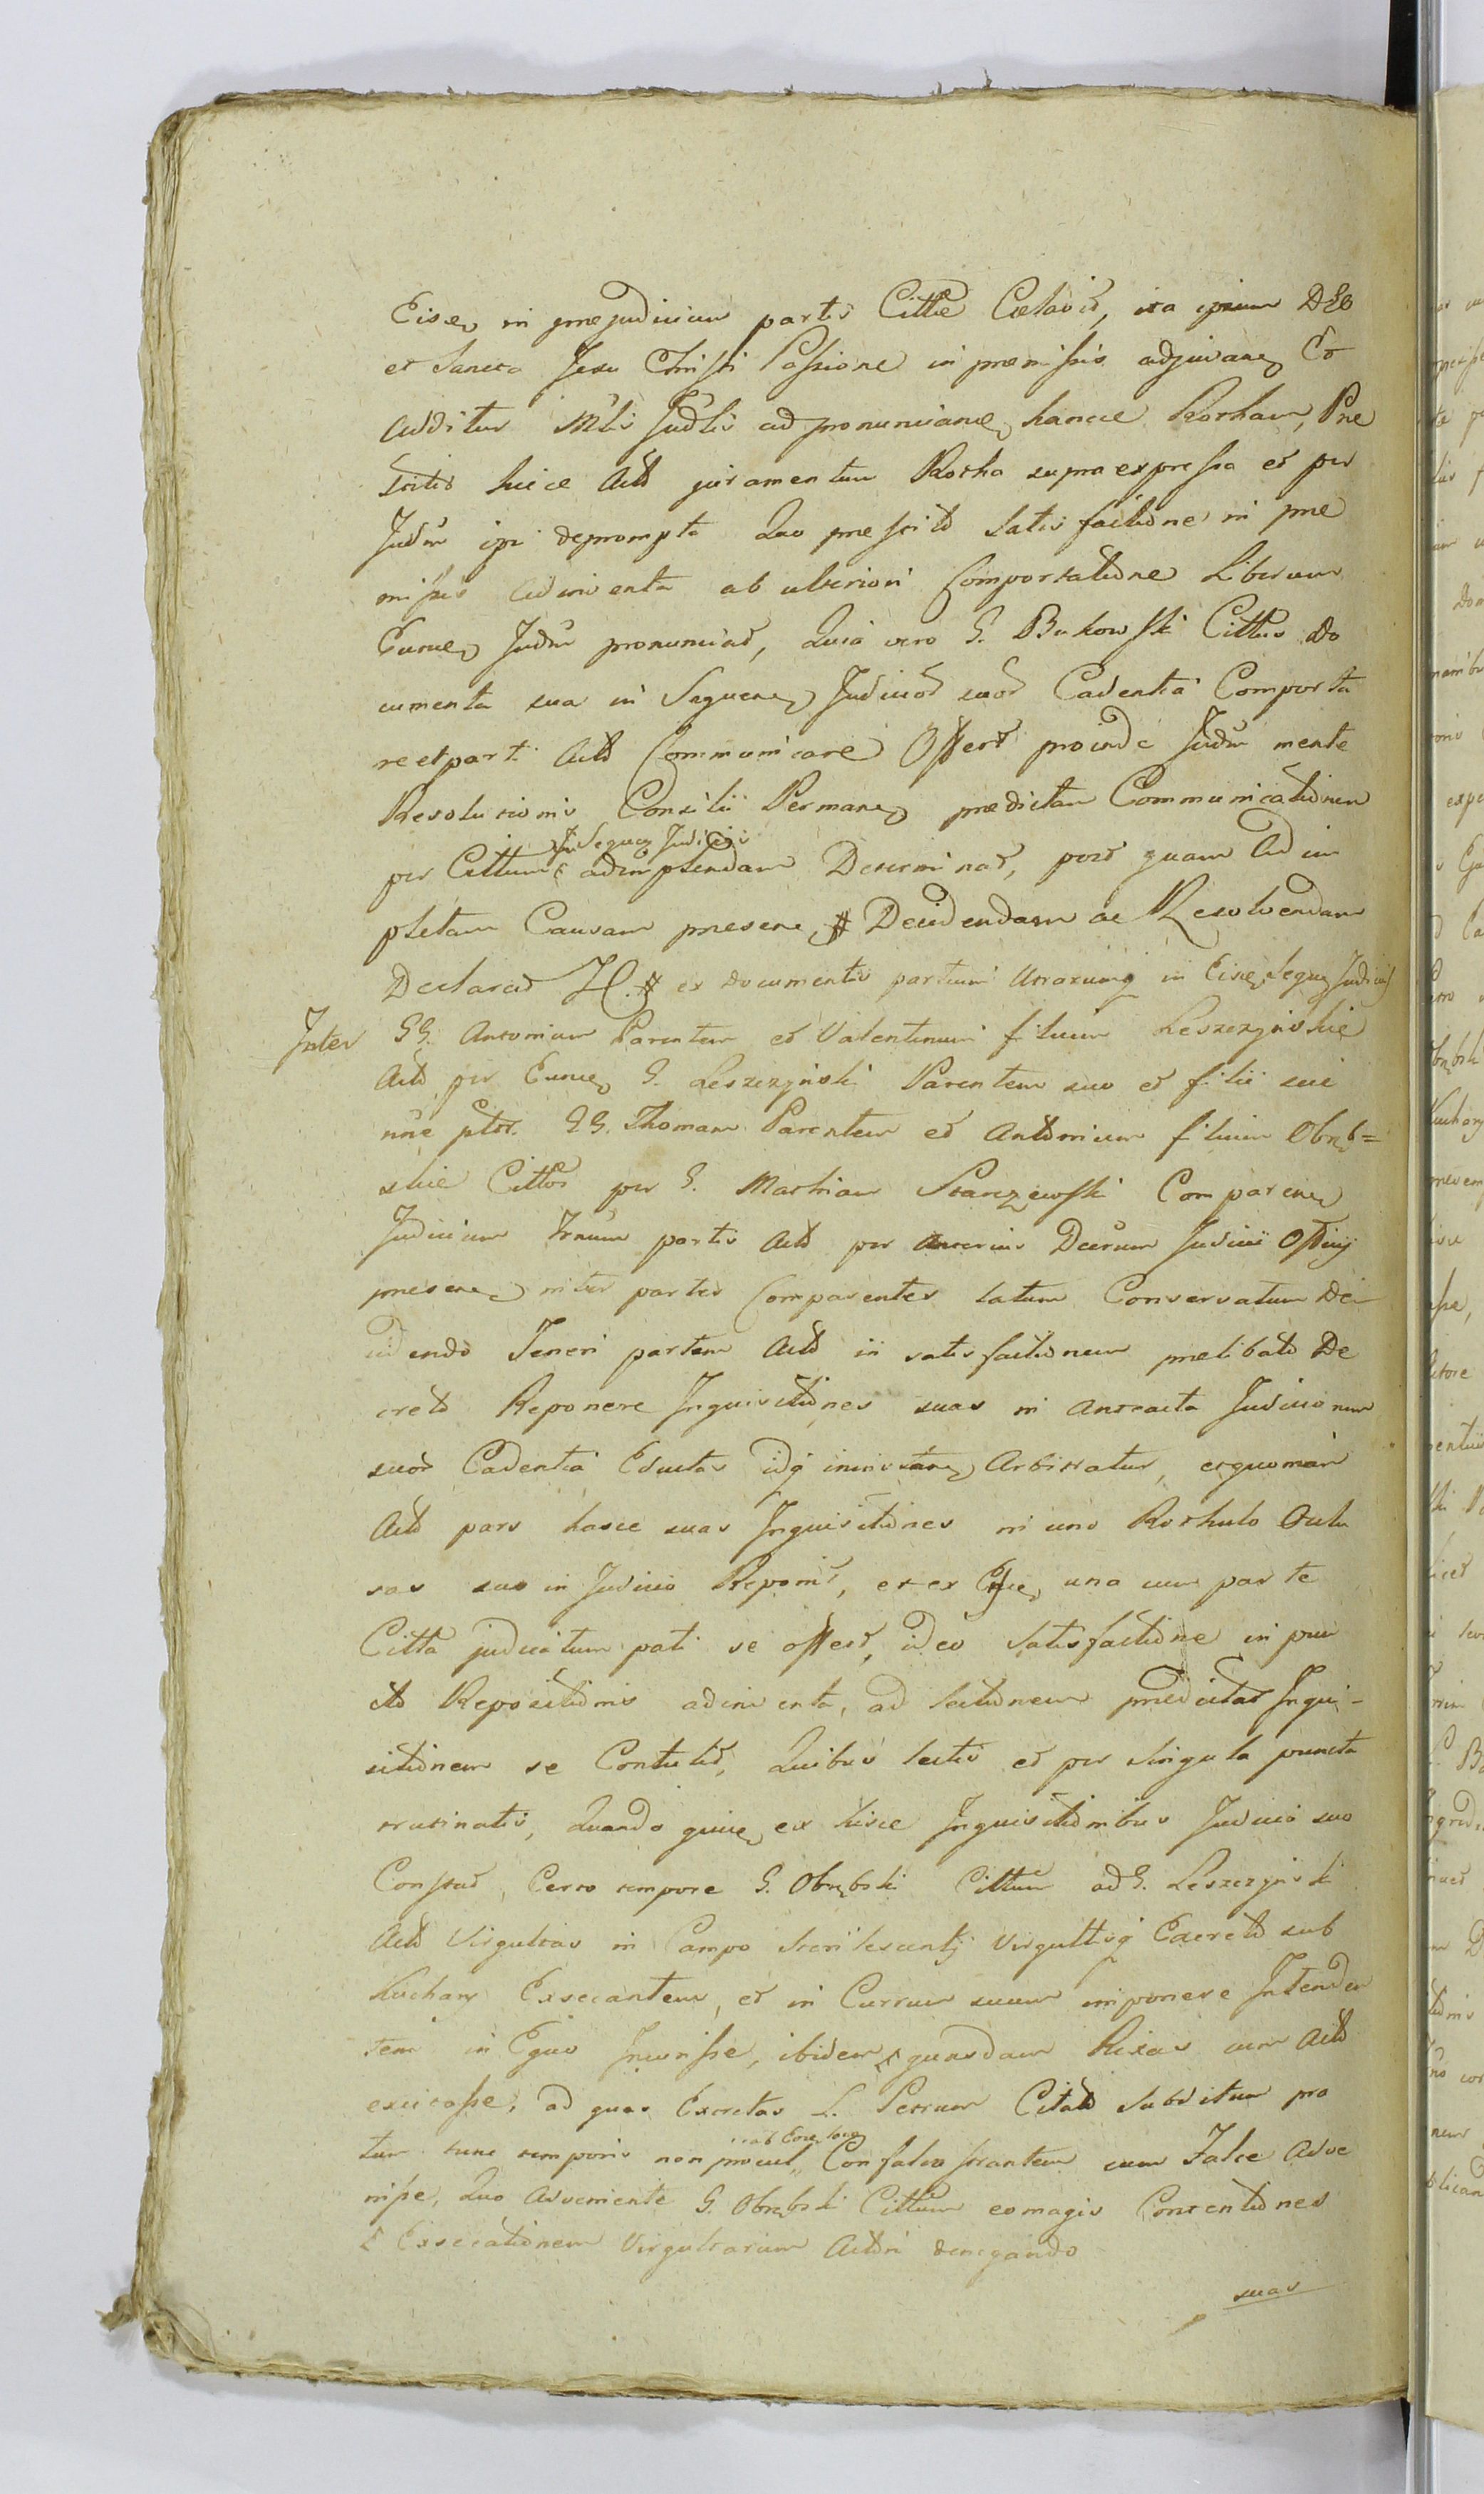 Eisę in præjudicium partis Cittæ Celavit, ita ipsum DEO
et Sancta Jesu Christi Passione in præmissis adjuvanę Et
additur Mlis Judlis ad pronuncianę hancce Rotham, Præ
stito hicce Actt juramentum Rotha supra expressa et per
Judm ipi deprompta Quo præstito Satisfactione in præ
missis adinventa ab ulteriori Comportatione Liberum
Eumę Judm pronunciat, Quia vero G. Bukowski Cittus do
cumenta sua in Sequenę Judicior suor Cadentia Comporta
re et parti Actt Communicare Offert proinde Judm mente
Resolucionis Consilii Permanę prædictam Communicationem
In Sequen Judiciis
per Cittum adimplendam Determinat, post quam Adim
pletam Causam præsenę # Decidendam ac Resolvendam
Declarat # ex documentis partium Utrarumq in Eisę Sequę Judiciis
Inter GG. Antonium Parentem et Valentinum filium Leszczyńskie
Actt per Eumę G. Leszczyński Parentem suo et filii sui
nne ptos. GG. Thomam Parentem et Antonium filium Obręb=
skie Cittos per G. Mathiam Stanczewski Comparenę
Judicium Trnum partis Actt per Anterius Decrum Judicii Officij
præsenę inter partes Comparentes latum Conservatum De
cidendo Teneri partem Actt in satisfactionem prælibati De
creti Reponere Inquisitiones suas in Anteacta Judiciorum
suor Cadentia Eductas idq Arbitratur, et quoniam
Actt pars hasce suas Inquisitiones in uno Rothulo Oclu
sas suo in Judicio Reponit, et ex Eisę una cum parte
Citta judicatum pati se offert, ideo Satisfactione in pun
cto Repositionis adinventa, ad lectionem prædictar Inqui-
sitionem se Contulit, Quibus lectis et per singula puncta
trutinatis, Quando quidę ex hisce Inquisitionibus Judicio suo
Constat, Certo tempore G. Obrębski Cittum ad G. Leszczyński
Actt Virgultas in Campo Sterilescenti Virgultisq Excreto sub
Kuchary Exsecantem, et in Currum suum imponere Intenden
tem in Equo Incurisse, ibidem quasdam Rixas cum Actt
excitasse, ad quas Excitas L. Petrum Citati Subditum pra
ab Eoę loco
tum tunc temporis non procul Confalcastrantem cum Falce Adve
nisse, Quo Adveniente G. Obrębski Cittum eo magis Contentiones
Exsecationem Virgultarum Actori denegando
suas